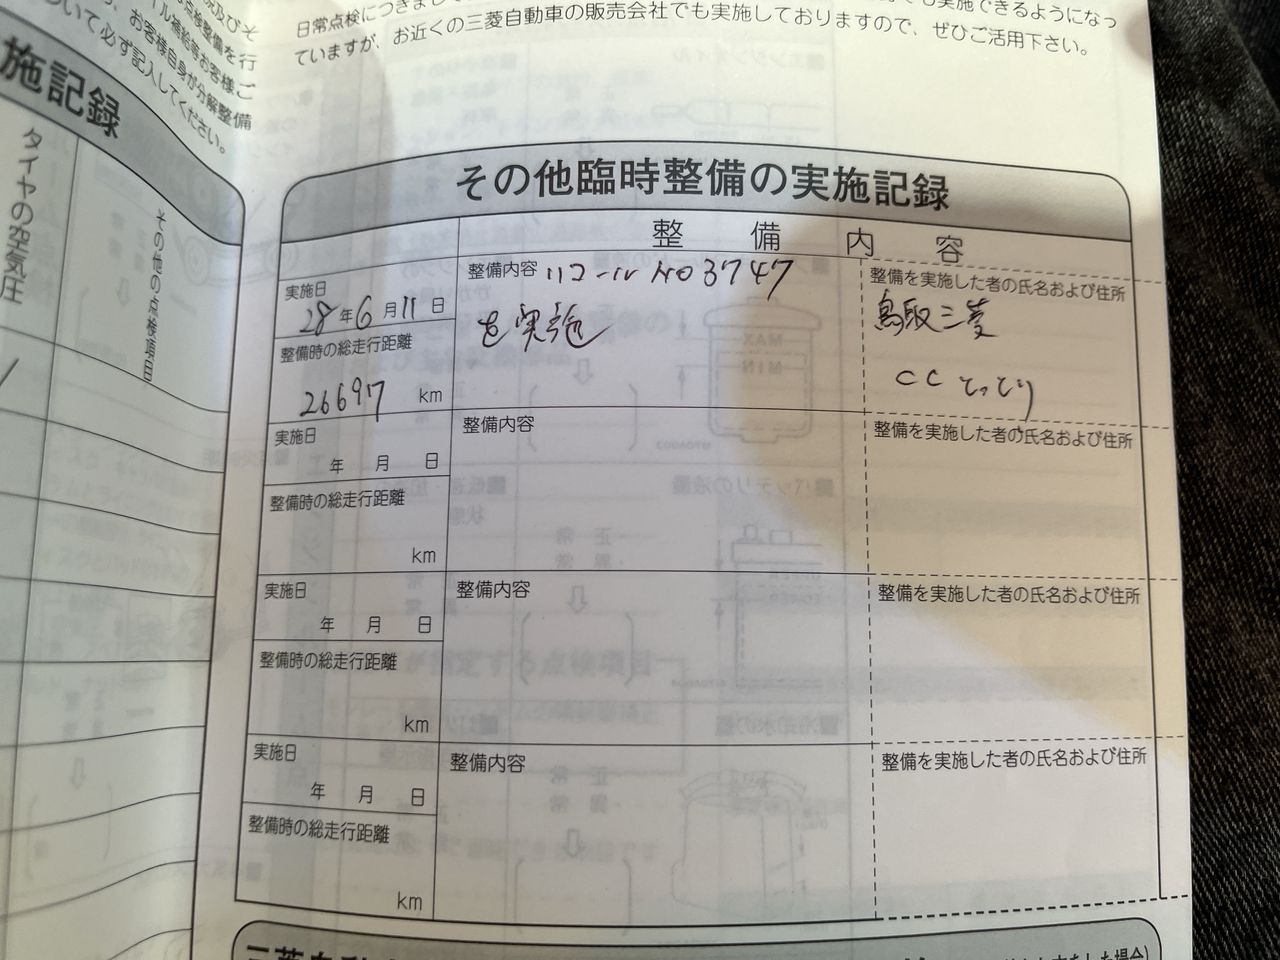 日常点検につきまして
実施できるようになっ
ていますが、お近くの三菱自動車の販売会社でも実施しておりますので、ぜひご活用下さい。
点検整備を行
イル補給等お客様ご
お客様自身が分解整備
ついて必ず記入してください。
施記録
タイヤの空気圧
その他の点検項目
その他臨時整備の実施記録
整備内容
実施日
28年6月11日
整備時の総走行距離
26697 km
整備内容 リコール NO3747
を実施
整備を実施した者の氏名および住所
鳥取三菱
CCとっとり
実施日
年 月 日
整備時の総走行距離
km
整備内容
整備を実施した者の氏名および住所
実施日
年 月 日
整備時の総走行距離
km
整備内容
整備を実施した者の氏名および住所
実施日
年 月 日
整備時の総走行距離
km
整備内容
整備を実施した者の氏名および住所